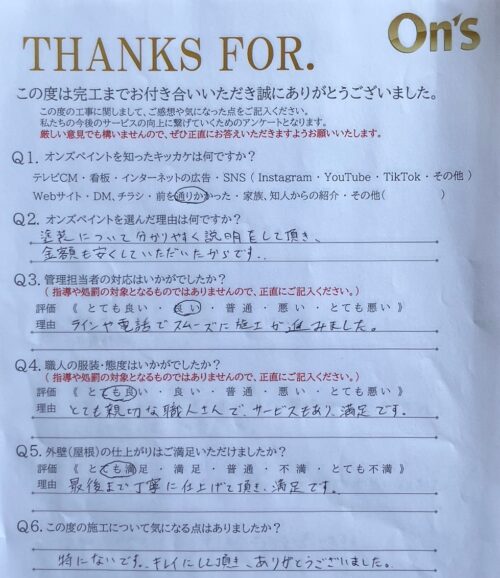 On's
THANKS FOR.
この度は完工までお付き合いいただき誠にありがとうございました。
この度の工事に関しまして、ご感想や気になった点をご記入ください。
私たちの今後のサービスの向上に繋げていくためのアンケートとなります。
厳しい意見でも構いませんので、ぜひ正直にお答えいただきますようお願いいたします。
Q1. オンズペイントを知ったキッカケは何ですか?
テレビCM・看板・インターネットの広告・SNS ( Instagram・YouTube・TikTok・その他 )
Webサイト・DM、チラシ・前を通りかかった・家族、知人からの紹介・その他( )
Q2. オンズペイントを選んだ理由は何ですか?
塗装について分かりやすく説明をして頂き、
金額も安くしていただいたからです。
Q3. 管理担当者の対応はいかがでしたか?
( 指導や処罰の対象となるものではありませんので、正直にご記入ください。)
評価 《 とても良い ・ 良い ・ 普通 ・ 悪い ・ とても悪い 》
理由 ラインや電話でスムーズに施工が進みました。
Q4. 職人の服装・態度はいかがでしたか?
( 指導や処罰の対象となるものではありませんので、正直にご記入ください。)
評価 《 とても良い ・ 良い ・ 普通 ・ 悪い ・ とても悪い 》
理由 とても親切な職人さんで、サービスもあり、満足です。
Q5. 外壁(屋根)の仕上がりはご満足いただけましたか?
評価 《 とても満足 ・ 満足 ・ 普通 ・ 不満 ・ とても不満 》
理由 最後まで丁寧に仕上げて頂き、満足です。
Q6. この度の施工について気になる点はありましたか?
特にないです。キレイにして頂き、ありがとうございました。